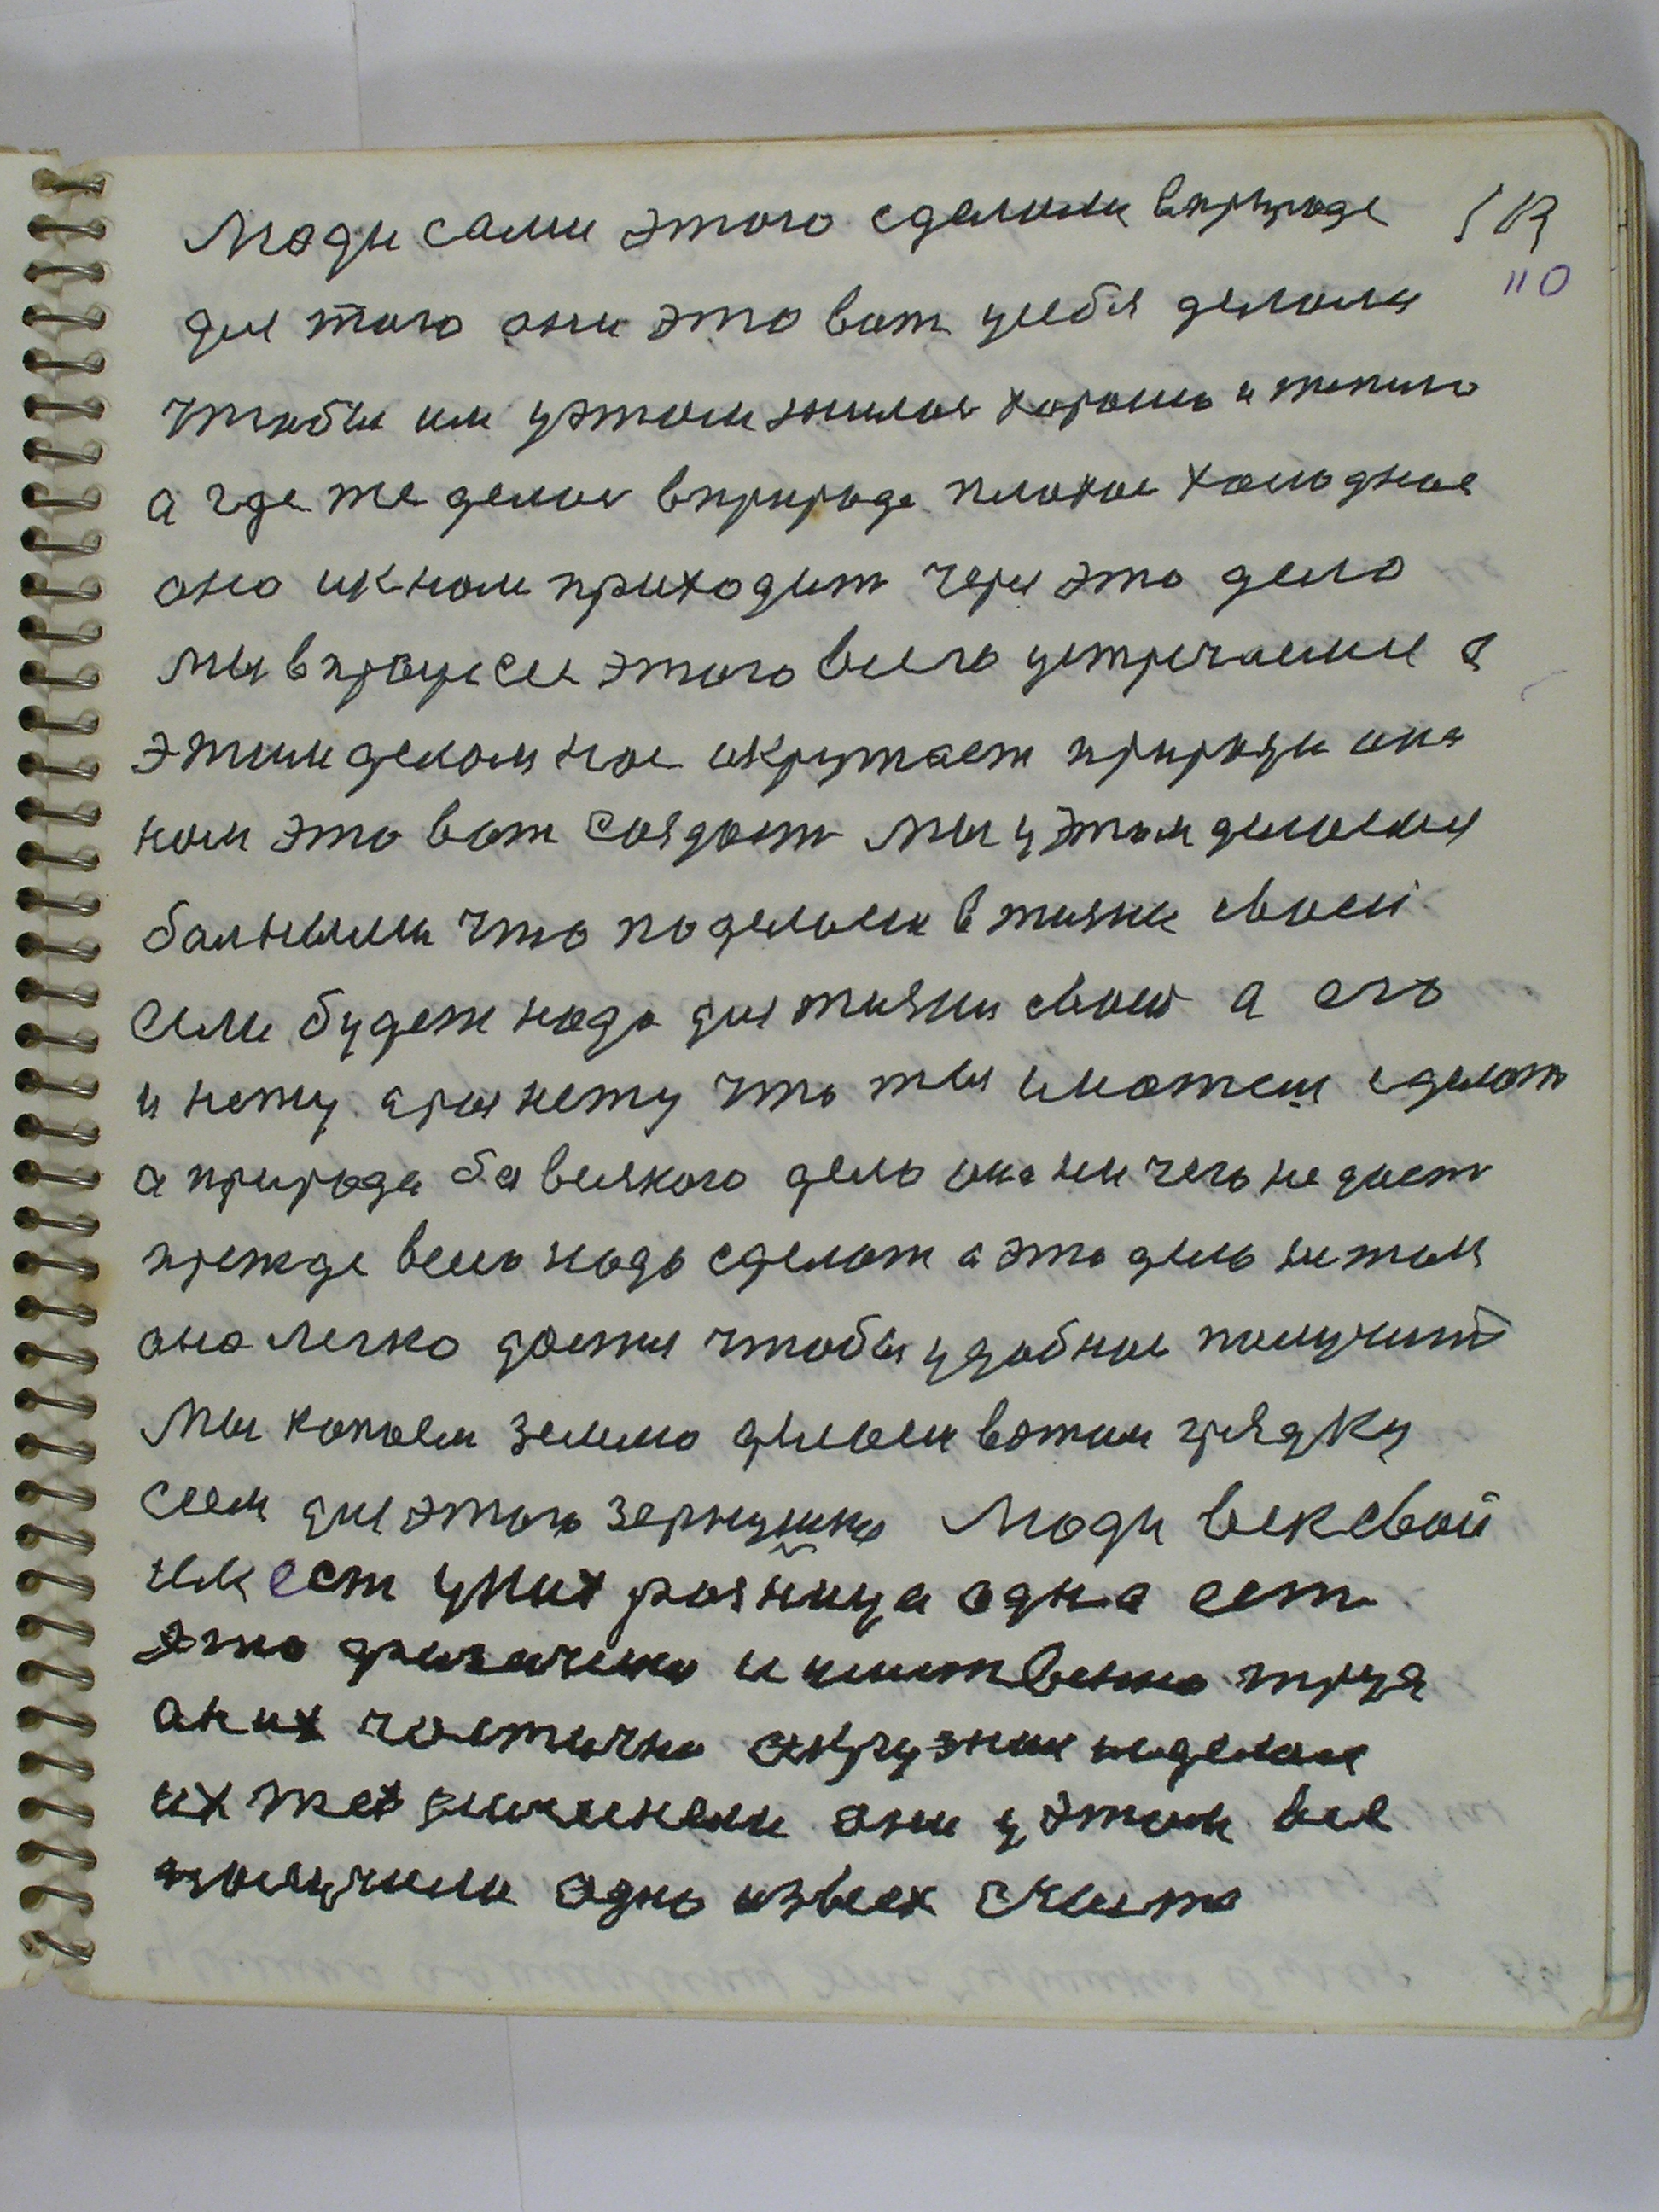 Люди сами этого сделали вприроде
110
для того они это вот усебя делали
чтобы им уэтом жилос хорошо и тепило
а где же делос вприроде плохое холодное
оно икнам приходит через это дело
мы впроцесе этого всего устречаемся а
этим делом нас икружает природа она
нам это вот создает мы уэтом делаемся
балными что поделаеш вжизни своей
если будет надо для жизни своей а его
и нету а раз нету что ты сможеш сделать
а природа без всякого дела она ни чего не дает
прежде всего надо сделат а это дело не так
оно легко дается чтобы удобное получит
мы копаем землю делаем воткм грядку
сеем для этого зернушко Люди век свой
ест уних разница одна ест
это физическо и умствено труд
аних частично окружили неделаем
их же они уэтом все
получили одно извсех